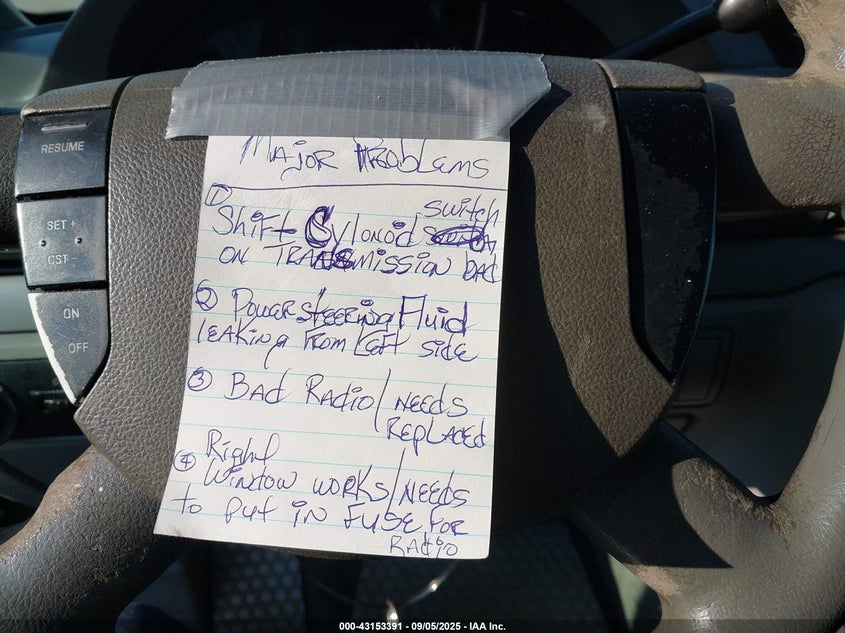 RESUME
SET +
CST -
ON
OFF
Major Problems
① Switch
Shift Sylonoid
on Transmission bad
② Power steering Fluid
leaking From Left side
③ Bad Radio/needs
Replaced
④ Right
Window works/needs
to put in fuse for
Radio
000-43153391 - 09/05/2025 - IAA Inc.